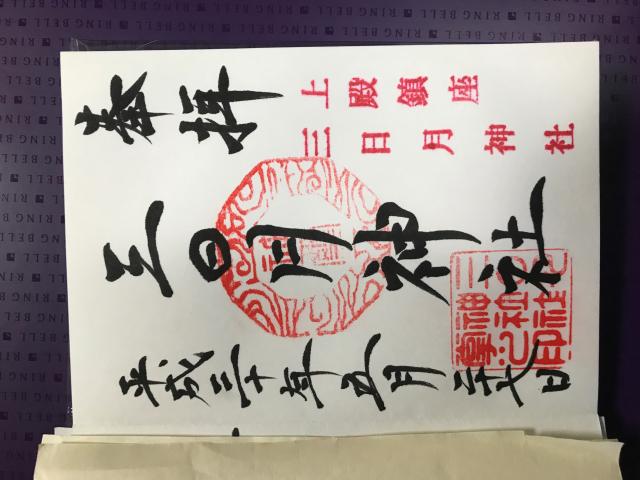 奉拝
上殿鎮座
三日月神社
三日月神社
平成三十年五月二十八日
RING BELL